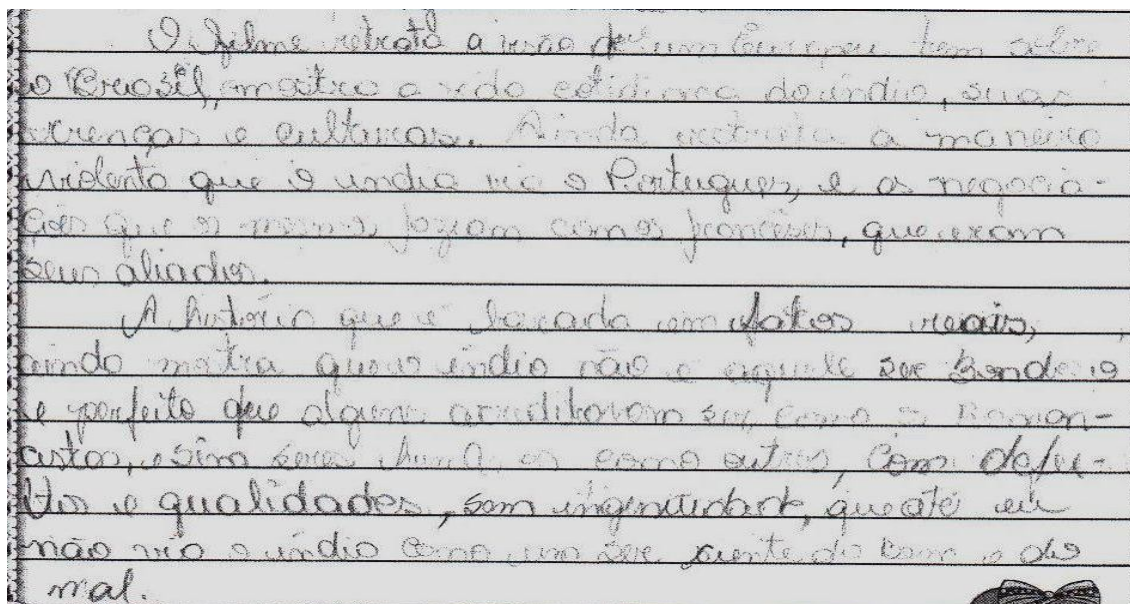 O filme retrata a visão que um Europeu tem sobre
o Brasil, mostra a vida cotidiana do índio, suas
crenças e culturas. Ainda retrata a maneira
violenta que o índio via o Portugues, e as negocia-
ções que os mesmos faziam com os franceses, que eram
seus aliados.
A história que é baseada em fatos reais,
ainda mostra que o índio não é aquele ser bondoso
e perfeito que alguns acreditavam ser, como o Roman-
astas, e sim seres humanos como outros, com defei-
tos e qualidades, sem ingenuidade, que até eu
não via o índio como um ser ciente do bem e do
mal.